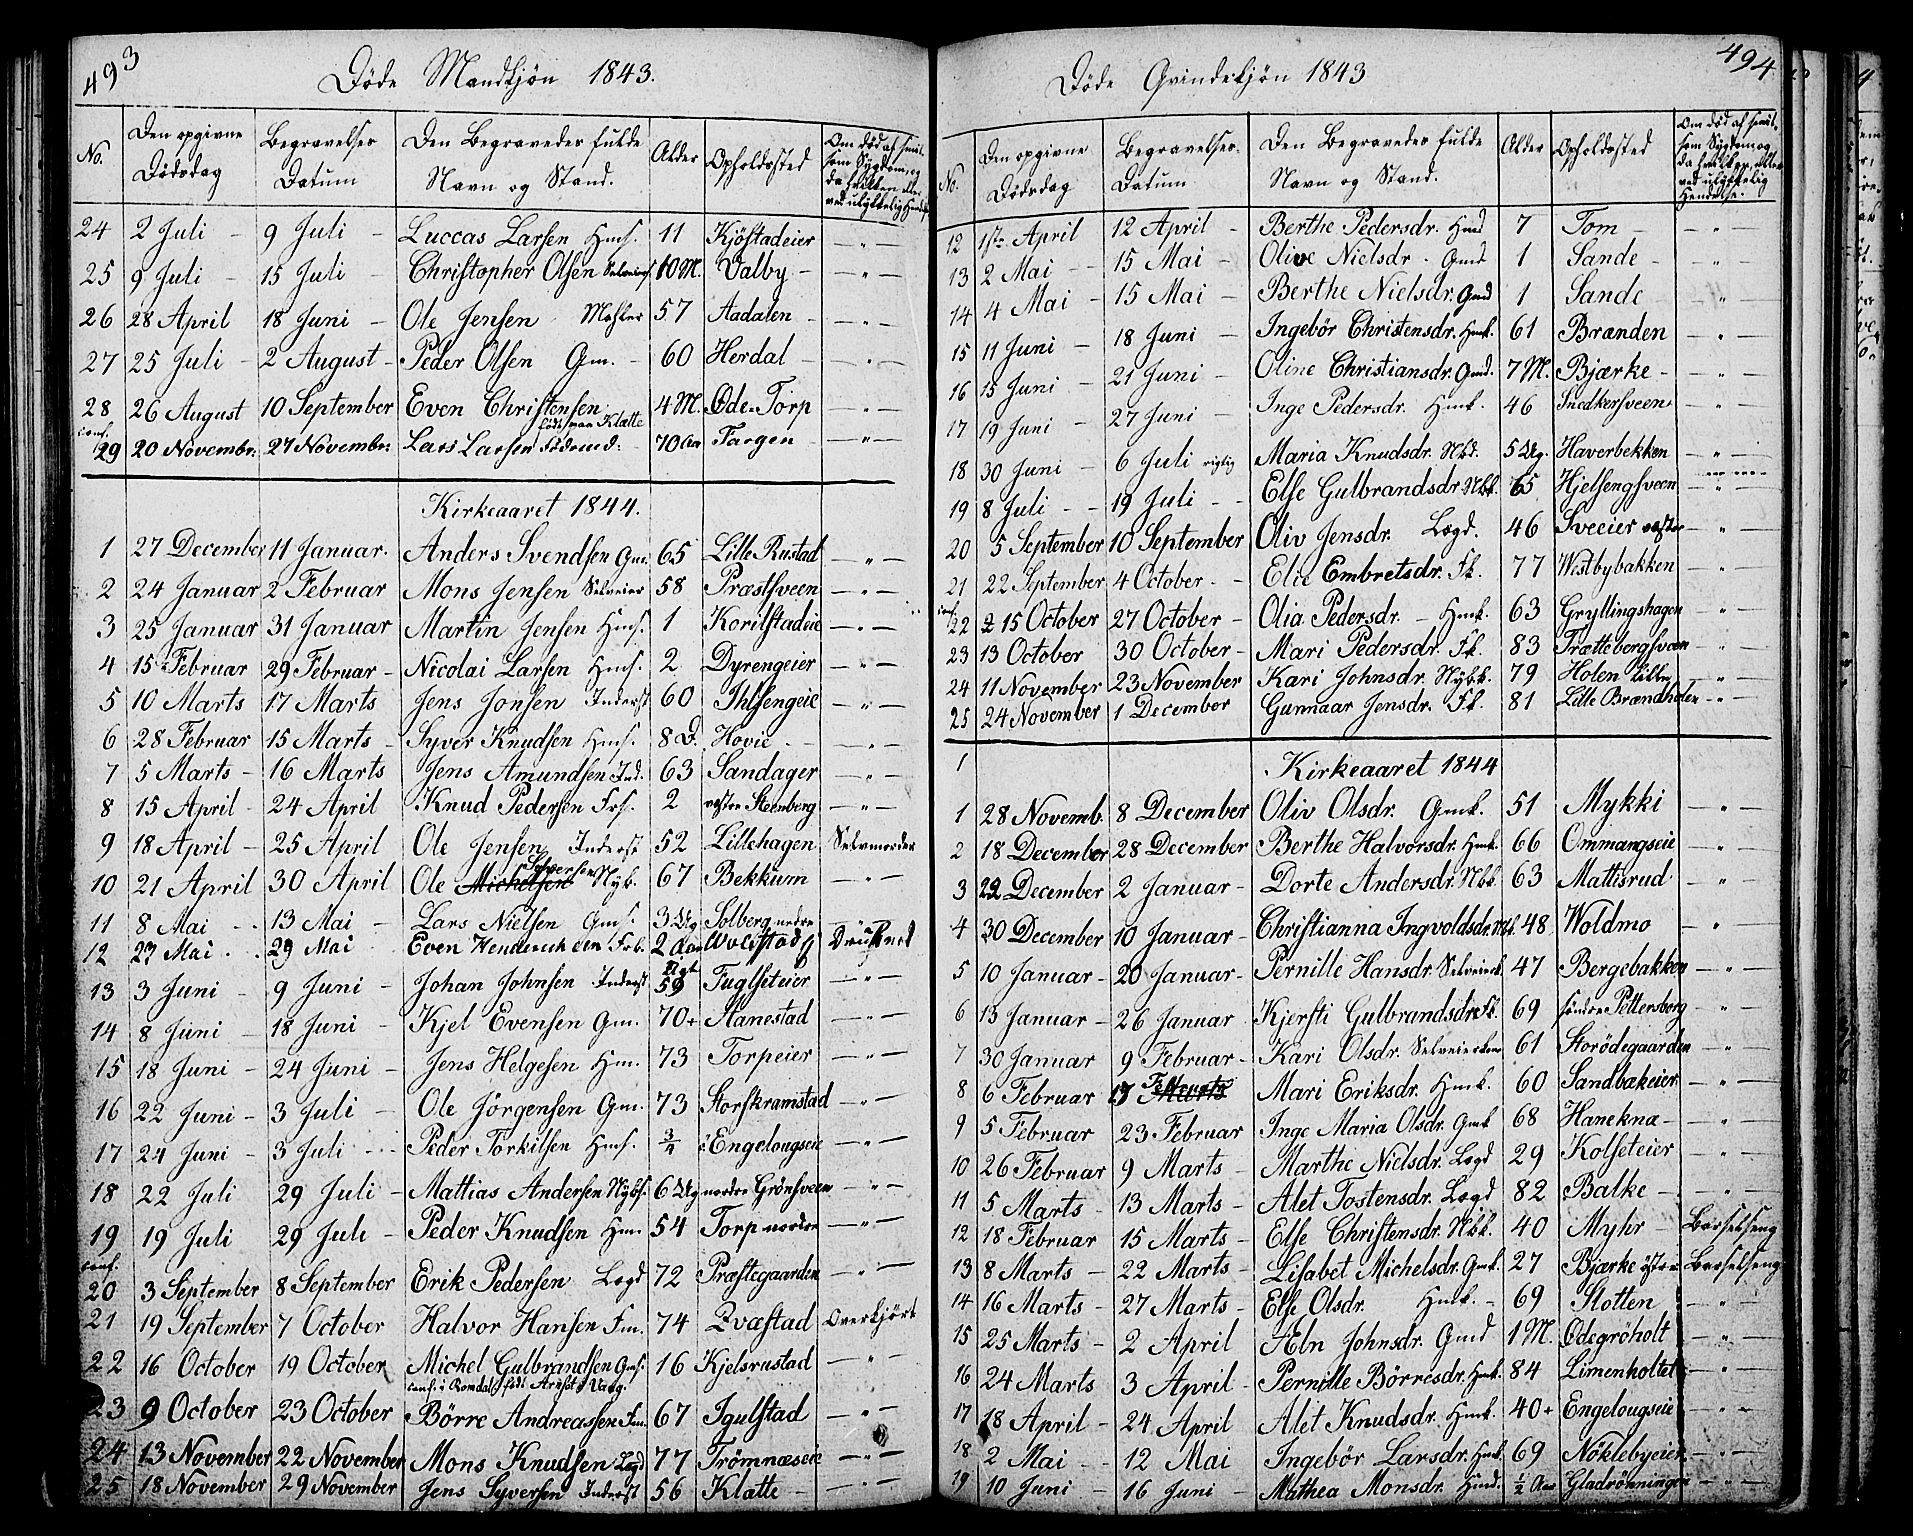 493
Döde Mandkjön 1843.
No. Den opgivne Dödsdag Begravelses Datum Den Begravedes fulde Navn og Stand. Alder Opholdssted Om död af smitsom Sygdom og da hvilken, eller ved ulykkelig Hendelse
24 2 Juli - 9 Juli - Luccas Larsen Hms. 11 Kjöstadeier - " -
25 9 Juli - 15 Juli - Christopher Olsen Selveiers 10 M. Valby - - " -
26 28 April 18 Juni - Ole Jensen Mahler 57 Aadalen - - " -
27 25 Juli - 2 August - Peder Olsen Gm. - 60 Herdal - "
28 26 August 10 September Even Christensen 4 M. Öde-Torp - " -
conf. födt paa Klætte
29 20 Novembr: 27 Novembr: Lars Larsen Födemd: 70 Aar Fargen - " -
Kirkeaaret 1844.
1 27 December 11 Januar. Anders Svendsen Gm. 65 Lille Rustad - " -
2 24 Januar 2 Februar Mons Jensen Selveier 58 Præstsveen - " -
3 25 Januar 31 Januar Martin Jensen Hms. 1 Korilstadeie - " -
4 15 Februar 29 Februar - Nicolai Larsen Hms. 2 Dyrengeier - " -
5 10 Marts 17 Marts Jens Jonsen Inderst 60 Ihlsengeie - " -
6 28 Februar 15 Marts - Syver Knudsen Hms. 8 D. Hovie - - " -
7 5 Marts - 16 Marts Jens Amundsen Ind. 63 Sandager - " -
8 15 April - 24 April Knud Pedersen Frs. 2 vestre Steenberg - " -
9 18 April - 25 April Ole Jensen Inderst 52 Lillehagen Selvmorder
Syversen
10 21 April 30 April Ole Michelsen Nyb. 67 Bekkum - " -
11 8 Mai - 13 Mai - Lars Nielsen Gms. 3 Ug Solberg nedre
12 27 Mai 29 Mai Even Frb. 2 Aar Druknet
13 3 Juni - 9 Juni - Johan Johnsen Inderst 59 Fuglseteier - " -
14 8 Juni - 18 Juni - Kjel Evensen Gm. 70+ Stanestad - " -
15 18 Juni - 24 Juni - Jens Helgesen Hm. 73 Torpeier - " -
16 22 Juni - 3 Juli - Ole Jörgensen Gm. 73 Storskramstad - " -
17 24 Juni - 3 Juli - Peder Torkilsen Hms. 3/4 Engelougseie - " -
18 22 Juli 29 Juli - Mattias Andersen Nybs. 6 Ug nordre Grönsveen - " -
19 19 Juli 29 Juli - Peder Knudsen Hm. 54 Torp nordre - " -
conf.
20 3 September 8 September Erik Pedersen Lægd 72 Præstegaarden - " -
21 19 September 7 October Halvor Hansen Fm. 74 Qvæstad Overkjört
22 16 October 19 October Michel Gulbrandsen Gms. 16 Kjelsrustad - " -
conf. i Romdal, födt Vang.
23 9 October 23 October Börre Andreassen Fm. 67 Igulstad - " -
24 13 November 22 November Mons Knudsen Lægd 77 Trömnæseie - " -
25 18 November 29 November Jens Syversen Inderst 56 Klatte - - " -
494
Döde Qvindekjön 1843
No. Den opgivne Dödsdag Begravelses Datum Den Begravedes fulde Navn og Stand. Alder Opholdssted Om död af smitsom Sygdom og da hvilken, eller ved ulykkelig Hendelse.
12 1ste April 12 April - Berthe Pedersdr. Hmd 7 Tom - - " -
13 2 Mai - 15 Mai - Olive Nielsdr - Gmd 1 Sande - - " -
14 4 Mai - 15 Mai - Berthe Nielsdr. Gmd 1 Sande "
15 11 Juni - 18 Juni - Ingebör Christensdr. Hmk. 61 Brænden - " -
16 15 Juni - 21 Juni - Oline Christiansdr. Gmd. 7 M. Bjærke - - " -
17 19 Juni - 27 Juni - Inge Pedersdr. Hmk. 46 Snedkersveen - " -
18 30 Juni - 6 Juli rigtig Maria Knudsdr. Nbd. 5 Ug. Haverbekken - " -
19 8 Juli - - 19 Juli - Else Gulbrandsdr. Nbk. 65 Hjelsengsveen - " -
20 5 September 10 September Oliv Jensdr. Lægd. 46 Sveeier vestre - " -
21 22 September 4 October - - Elie Embretsdr. Fk. 77 Westbybakken - " -
conf.
22 2 15 October 27 October - Olia Pedersdr. - Hmk. 63 Gryllingshagen - " -
23 13 October 30 October - Mari Pedersdr. Fk. 83 Trættebergsveen - " -
24 11 November 23 November Kari Johnsdr. Nybk. 79 Holen lille - " -
25 24 November 1 December Gunnaar Jensdr. Fk. 81 Lille Brændholen - " -
Kirkeaaret 1844
1 28 Novemb. 8 December Oliv Olsdr. Gmk. 51 Mykki - " -
2 18 December 28 December Berthe Halvorsdr. Hmk. 66 Ommangseie - " -
3 22 December 2 Januar - Dorte Andersdr. Nbk. 63 Mattisrud - " -
4 30 December 10 Januar - Christianna Ingvoldsdr. 48 Woldmo - " -
5 10 Januar - 20 Januar - Pernille Hansdr. Selveierk. 47 Bergebakken - " -
6 13 Januar - 26 Januar Kjersti Gulbrandsdr. Fk. 69 söndre Pettersberg - " -
7 30 Januar 9 Februar - Kari Olsdr. Selveierkone 61 Storödegaarden - " -
8 6 Februar 13 Marts Mari Eriksdr. Hmk. 60 Sandbækeier - " -
9 5 Februar 23 Februar Inge Maria Olsdr. Gmk 68 Hanekna - - " -
10 26 Februar 9 Marts - Marthe Nielsdr. Lægd 29 Kolseteier - " -
11 5 Marts - 13 Marts - Alet Tostensdr. Lægd 82 Balke - - " -
12 18 Februar 15 Marts - Else Christensdr. Nbk. 40 Myhr - Barselseng
13 8 Marts - 22 Marts - Lisabet Michelsdr. Gmk. 27 Bjærke östre Barselseng
14 16 Marts - 27 Marts - Else Olsdr. Hmk. - 69 Stotten - " -
15 25 Marts - 2 April Aln Johnsdr. Gmd 1 M. Ödegröholt - " -
16 24 Marts 3 April - Pernille Börresdr. Hmk. 84 Limenholtet - " -
17 18 April - 24 April Alet Knudsdr. Hmk. 40+ Engelougseie - " -
18 2 Mai - 12 Mai Ingebör Larsdr. Hmk. 69 Nöklebyeier - " -
19 10 Juni - 16 Juni - Mathea Monsdr. Hmd. 1/2 Aar Gladrönningen - " -